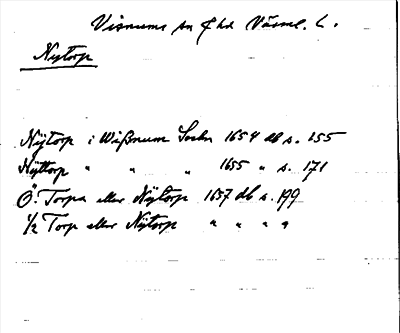 Visnums sn ffhd Värml. L.
Nytorp
Nÿtorp i Wißnum Sochn 1654 db s. 155
Nÿttorp " " " 1655 " s. 171
Ö. Torpa eller Nÿtorp 1657 db s. 199
1/2 Torp eller Nÿtorp " " " "